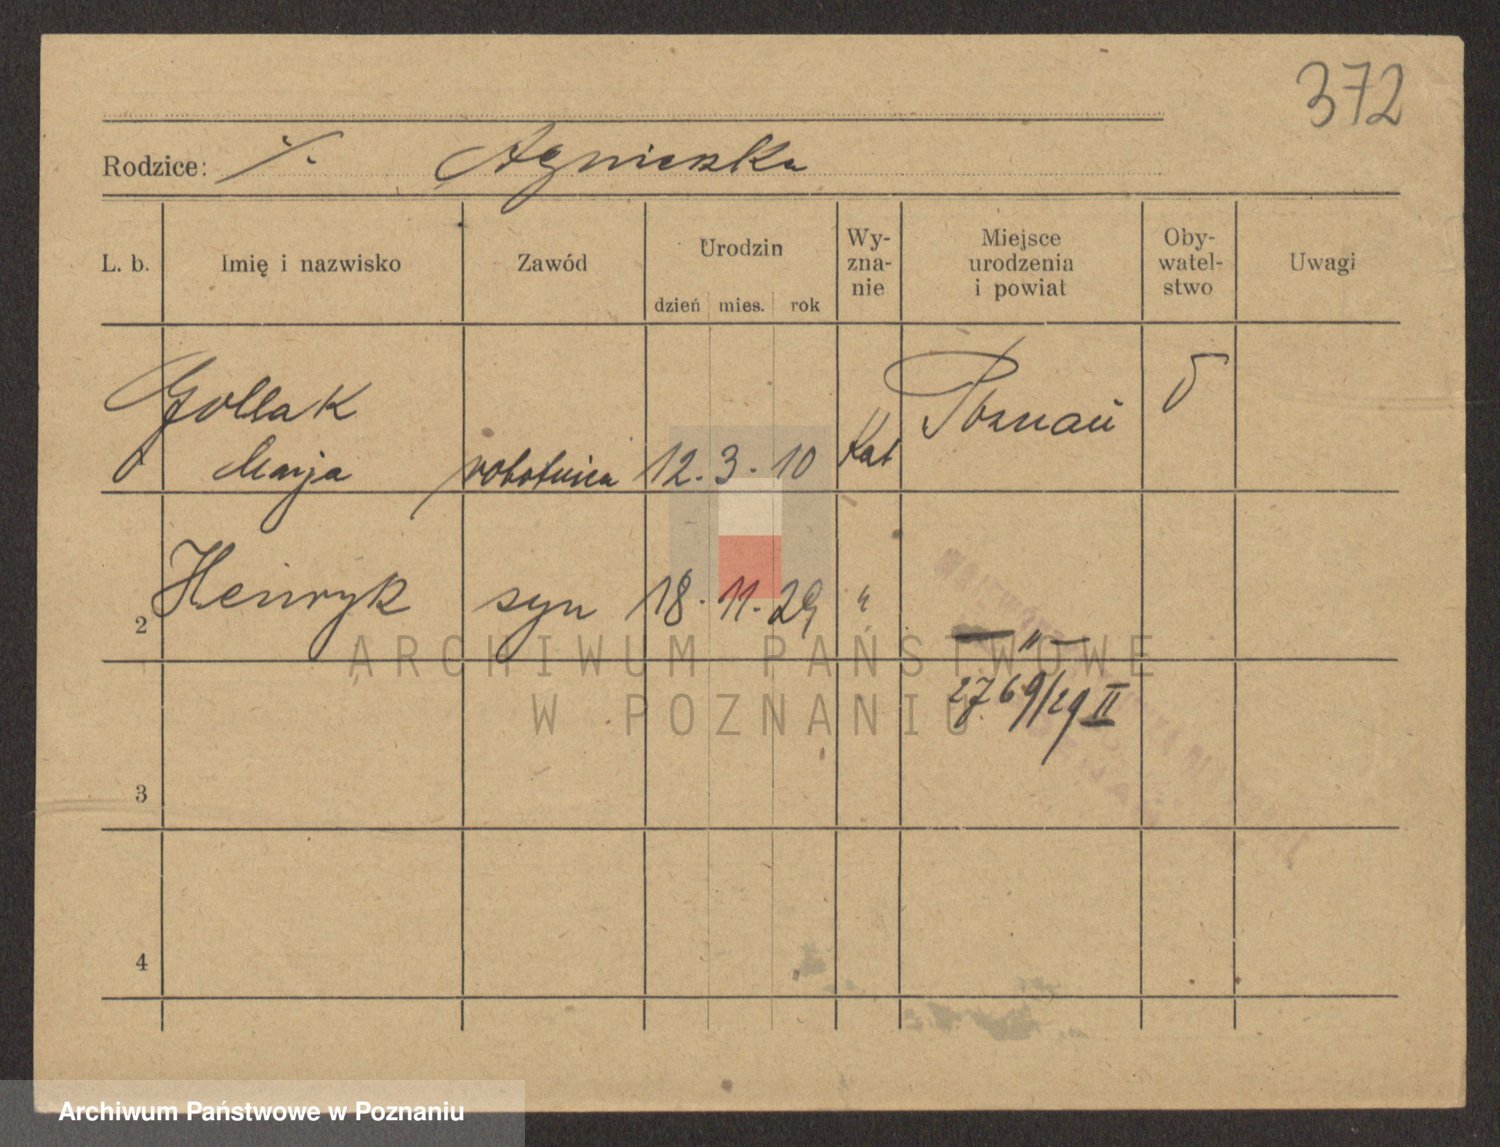 372
Rodzice: ./. Agnieszka
L. b. Imię i nazwisko Zawód Urodzin dzień mies. rok Wy-zna-nie Miejsce urodzenia i powiat Oby-watel-stwo Uwagi
Gollak
1 Marja robotnica 12. 3. 10 Kat Poznań
2 Henryk syn 18. 11. 29 " — " —
2769/29 II
3
4
ARCHIWUM PAŃSTWOWE
W POZNANIU
Archiwum Państwowe w Poznaniu